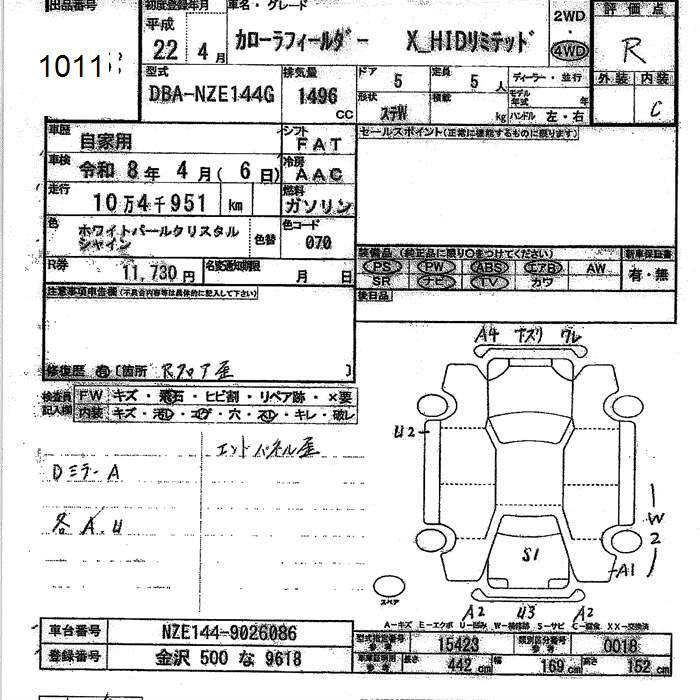 出品番号
10115
初度登録年月
平成
22 4月
車名・グレード
カローラフィールダー X_HIDリミテッド
2WD
・
4WD
評価点
R
外装 内装
C
型式
DBA-NZE144G
排気量
1496
CC
ドア 5
定員 5人
形状 ステW
積載 kg
ディーラー・並行
モデル年式 年
ハンドル 左・右
車歴
自家用
シフト
FAT
車検
令和 8年 4月( 6日)
冷房
AAC
走行
10万4千951 km
燃料
ガソリン
色
ホワイトパールクリスタル
シャイン
色替
色コード
070
R券
11,730円
名変通知期限 月 日
セールスポイント(正常に機能するものに限ります)
装備品(純正品に限り○をつけてください)
PS PW ABS エアB AW
SR ナビ TV カワ
新車保証書
有・無
後日品
注意事項申告欄(不具合内容等は具体的に記入して下さい)
修復歴 有 〔箇所 Rフロア歪 〕
検査員
記入欄
FW キズ・飛石・ヒビ割・リペア跡・×要
内装 キズ・汚レ・コゲ・穴・スレ・キレ・破レ
エンドパネル歪
Dミラー A
各 A.U
A4 ナズリ ワレ
U2
W
2
A1
S1
スペア
A2 U3 A2
A-キズ E-エクボ U-凹み W-補修跡 S-サビ C-腐食 XX-交換済
車台番号 NZE144-9026086
登録番号 金沢 500 な 9618
型式指定番号
参考
15423
類別区分番号
参考
0018
車庫証明用
参考
長さ 442cm 幅 169cm 高さ 152cm